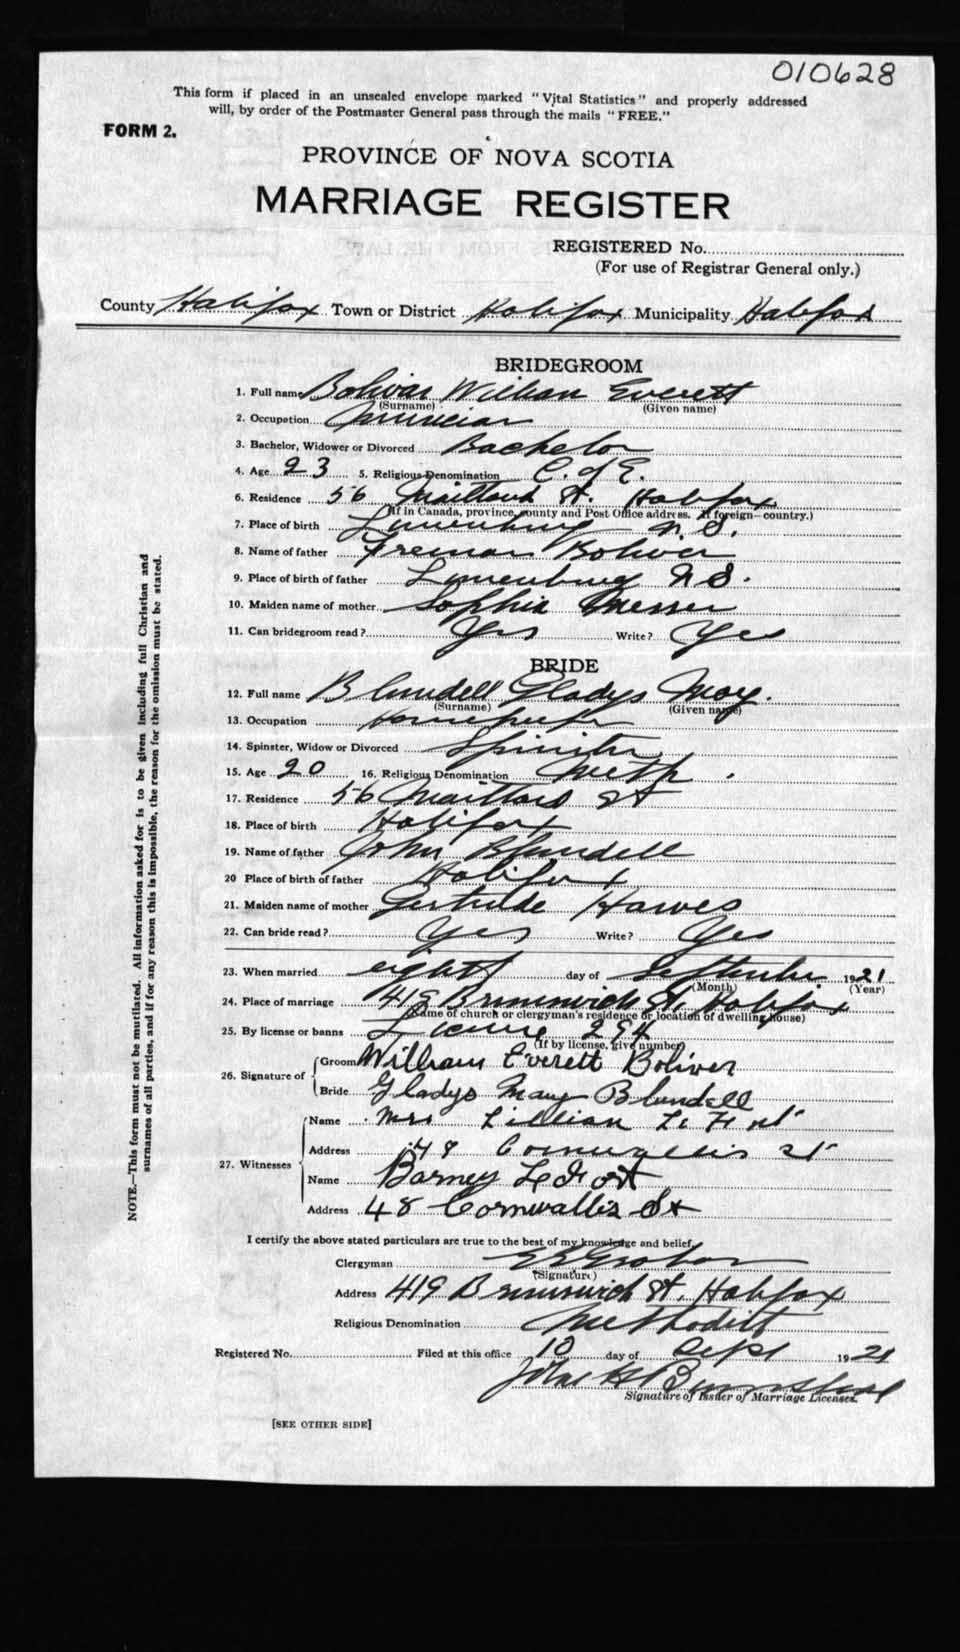 010628
This form if placed in an unsealed envelope marked "Vital Statistics" and properly addressed
will, by order of the Postmaster General pass through the mails "FREE."
FORM 2.
PROVINCE OF NOVA SCOTIA
MARRIAGE REGISTER
REGISTERED No.
(For use of Registrar General only.)
County Halifax Town or District Halifax Municipality Halifax
BRIDEGROOM
1. Full name Boliver William Everett
(Surname) (Given name)
2. Occupation Musician
3. Bachelor, Widower or Divorced Bachelor
4. Age 23 5. Religious Denomination C. of E.
6. Residence 56 Maitland St. Halifax
(If in Canada, province, county and Post Office address. If foreign—country.)
7. Place of birth Lunenburg N.S.
8. Name of father Freeman Boliver
9. Place of birth of father Lunenburg N.S.
10. Maiden name of mother Sophia Messer
11. Can bridegroom read? Yes Write? Yes
BRIDE
12. Full name Blundell Gladys May.
(Surname) (Given name)
13. Occupation
14. Spinster, Widow or Divorced Spinster
15. Age 20 16. Religious Denomination Meth.
17. Residence 56 Maitland St
18. Place of birth Halifax
19. Name of father John Blundell
20 Place of birth of father Halifax
21. Maiden name of mother Gertrude Hawes
22. Can bride read? Yes Write? Yes
23. When married eighth day of September 1921
(Month) (Year)
24. Place of marriage 419 Brunswick St. Halifax
(Name of church or clergyman's residence or location of dwelling house)
25. By license or banns License 294
(If by license, give number)
26. Signature of
Groom William Everett Boliver
Bride Gladys May Blundell
27. Witnesses
Name Mrs Lillian LeFort
Address 48 Cornwallis St
Name Barney LeFort
Address 48 Cornwallis St
I certify the above stated particulars are true to the best of my knowledge and belief,
Clergyman
(Signature)
Address 419 Brunswick St. Halifax
Religious Denomination Methodist
Registered No. Filed at this office 10 day of Sept 1921
Signature of Issuer of Marriage Licenses.
[SEE OTHER SIDE]
NOTE.—This form must not be mutilated. All information asked for is to be given including full Christian and
surnames of all parties, and if for any reason this is impossible, the reason for the omission must be stated.